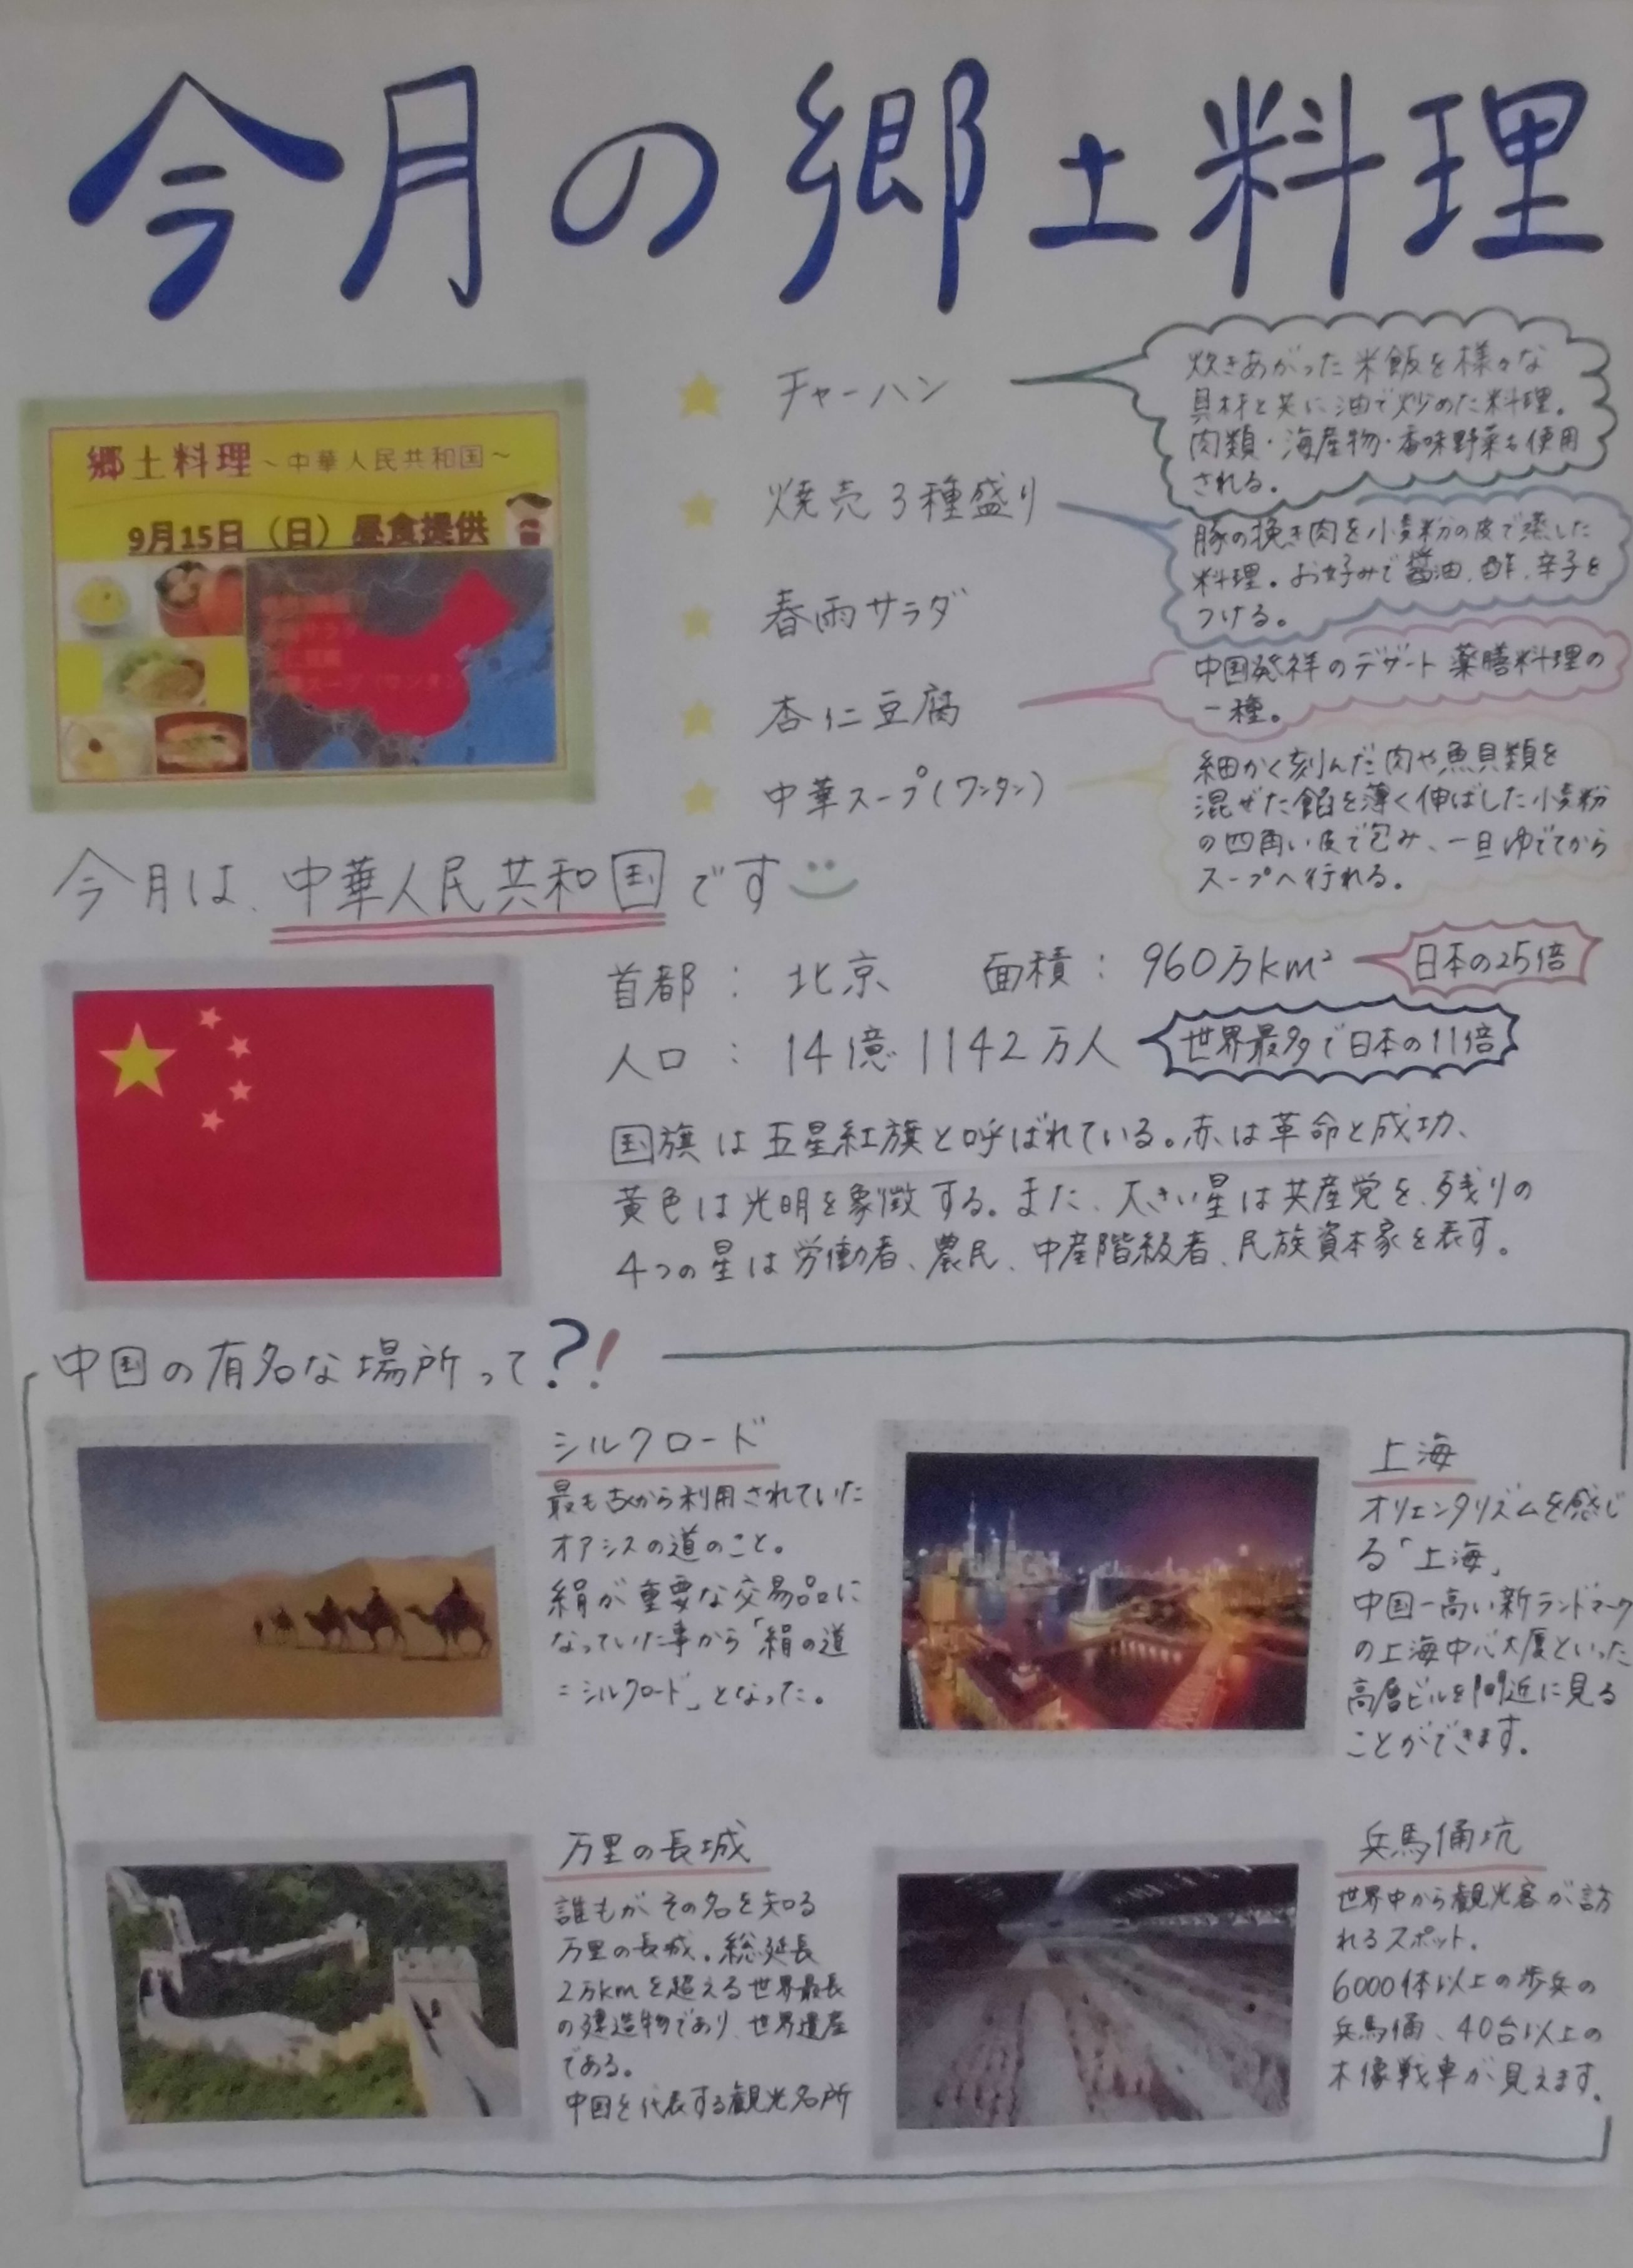 今月の郷土料理
郷土料理～中華人民共和国～
9月15日（日）昼食提供
チャーハン
炊きあがった米飯を様々な
具材と共に油で炒めた料理。
肉類・海産物・香味野菜も使用
される。
焼売3種盛り
豚の挽き肉を小麦粉の皮で蒸した
料理。お好みで醤油、酢、辛子を
つける。
春雨サラダ
杏仁豆腐
中国発祥のデザート 薬膳料理の
一種。
中華スープ(ワンタン)
細かく刻んだ肉や魚貝類を
混ぜた餡を薄く伸ばした小麦粉
の四角い皮で包み、一旦ゆでてから
スープへ行れる。
今月は、中華人民共和国です
首都：北京　面積：960万km²　日本の25倍
人口：14億1142万人　世界最多で日本の11倍
国旗は五星紅旗と呼ばれている。赤は革命と成功、
黄色は光明を象徴する。また、大きい星は共産党を、残りの
4つの星は労働者、農民、中産階級者、民族資本家を表す。
中国の有名な場所って?!
シルクロード
最も古くから利用されていた
オアシスの道のこと。
絹が重要な交易品に
なっていた事から「絹の道
＝シルクロード」となった。
上海
オリエンタリズムを感じ
る「上海」
中国一高い新ランドマーク
の上海中心大厦といった
高層ビルを間近に見る
ことができます。
万里の長城
誰もがその名を知る
万里の長城。総延長
2万kmを超える世界最長
の建造物であり、世界遺産
である。
中国を代表する観光名所
兵馬俑坑
世界中から観光客が訪
れるスポット。
6000体以上の歩兵の
兵馬俑、40台以上の
木像戦車が見えます。